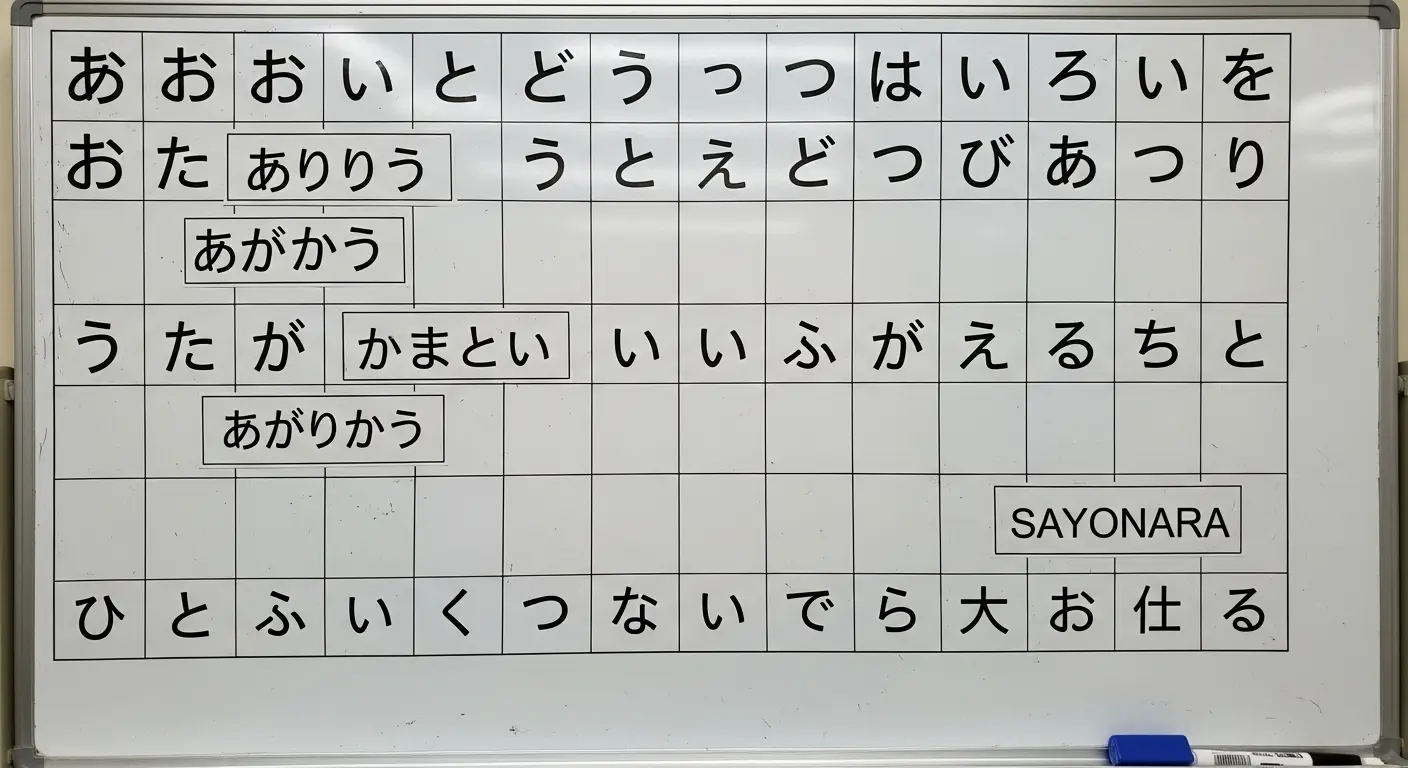 あおおいとどうっつはいろいを
おたありりううとえどつびあつり
あがかう
うたがかまといいいふがえるちと
あがりかう
SAYONARA
ひとふいくつないでら大お仕る